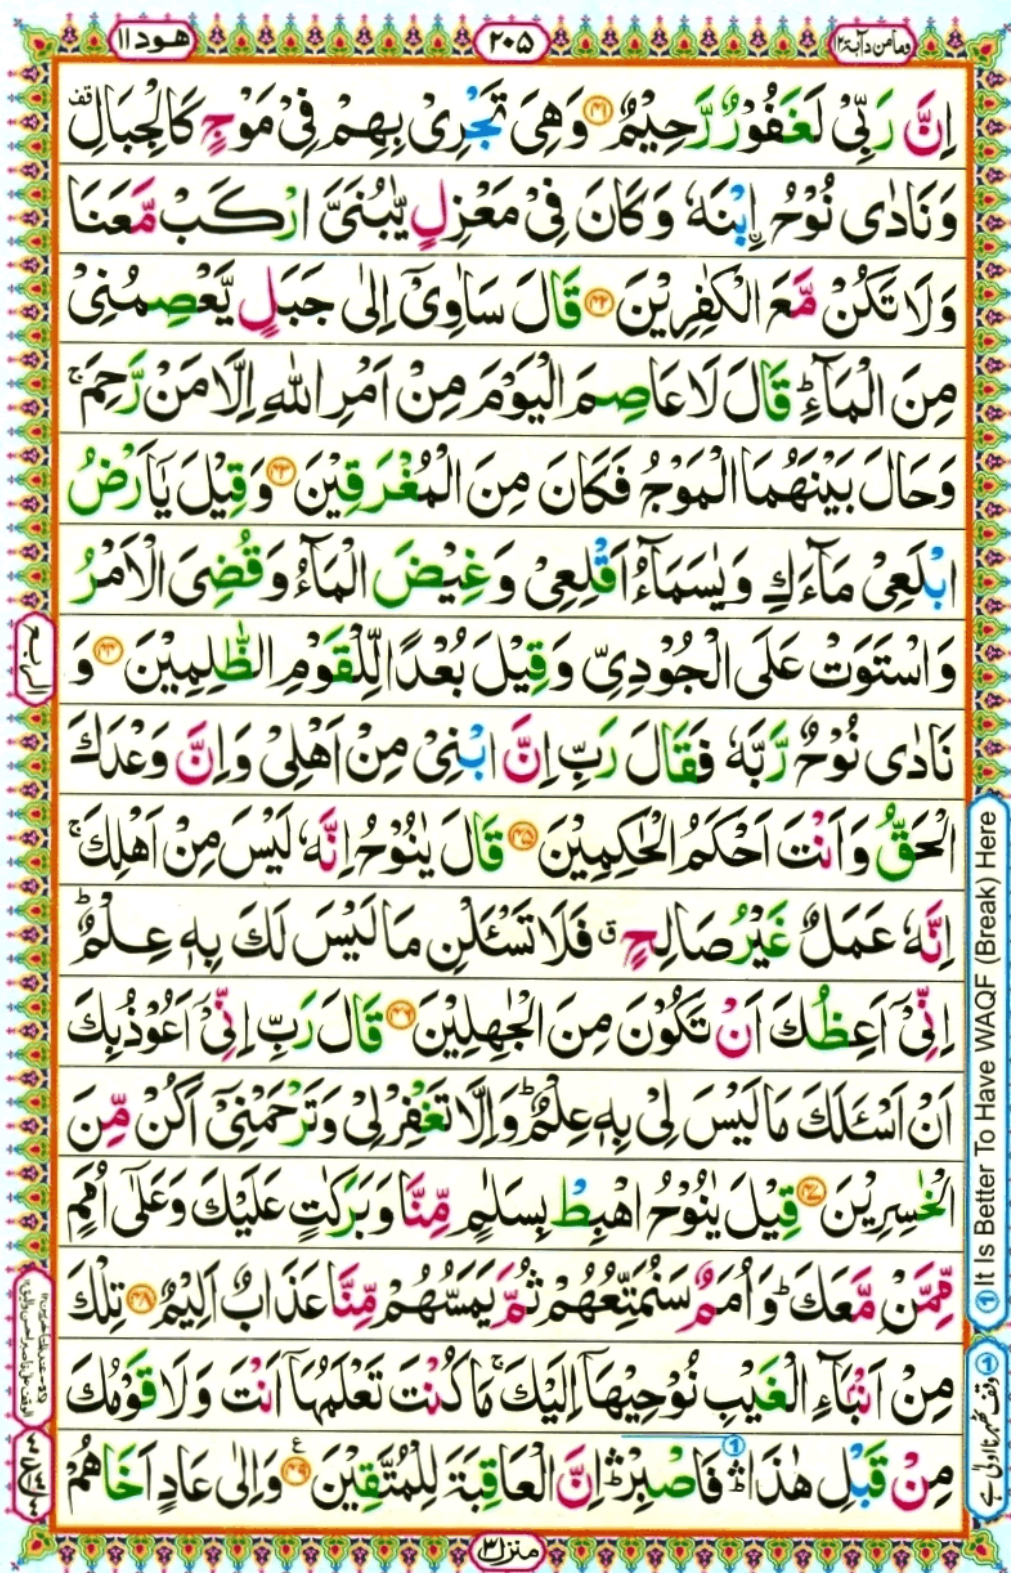 وما من دآبۃ ۱۲
۲۰۵
ھود ۱۱
اِنَّ رَبِّیْ لَغَفُوْرٌ رَّحِیْمٌ ﴿۴۱﴾ وَهِیَ تَجْرِیْ بِهِمْ فِیْ مَوْجٍ كَالْجِبَالِ ۫
وَنَادٰی نُوْحُ اۨبْنَهٗ وَكَانَ فِیْ مَعْزِلٍ یّٰبُنَیَّ ارْكَبْ مَّعَنَا
وَلَا تَكُنْ مَّعَ الْكٰفِرِیْنَ ﴿۴۲﴾ قَالَ سَاٰوِیْۤ اِلٰی جَبَلٍ یَّعْصِمُنِیْ
مِنَ الْمَآءِ ؕ قَالَ لَا عَاصِمَ الْیَوْمَ مِنْ اَمْرِ اللّٰهِ اِلَّا مَنْ رَّحِمَ ۚ
وَحَالَ بَیْنَهُمَا الْمَوْجُ فَكَانَ مِنَ الْمُغْرَقِیْنَ ﴿۴۳﴾ وَقِیْلَ یٰۤاَرْضُ
ابْلَعِیْ مَآءَكِ وَیٰسَمَآءُ اَقْلِعِیْ وَغِیْضَ الْمَآءُ وَقُضِیَ الْاَمْرُ
وَاسْتَوَتْ عَلَی الْجُوْدِیِّ وَقِیْلَ بُعْدًا لِّلْقَوْمِ الظّٰلِمِیْنَ ﴿۴۴﴾ وَ
نَادٰی نُوْحٌ رَّبَّهٗ فَقَالَ رَبِّ اِنَّ ابْنِیْ مِنْ اَهْلِیْ وَاِنَّ وَعْدَكَ
الْحَقُّ وَاَنْتَ اَحْكَمُ الْحٰكِمِیْنَ ﴿۴۵﴾ قَالَ یٰنُوْحُ اِنَّهٗ لَیْسَ مِنْ اَهْلِكَ ۚ
اِنَّهٗ عَمَلٌ غَیْرُ صَالِحٍ ۖ فَلَا تَسْـَٔلْنِ مَا لَیْسَ لَكَ بِهٖ عِلْمٌ ؕ
اِنِّیْۤ اَعِظُكَ اَنْ تَكُوْنَ مِنَ الْجٰهِلِیْنَ ﴿۴۶﴾ قَالَ رَبِّ اِنِّیْۤ اَعُوْذُ بِكَ
اَنْ اَسْـَٔلَكَ مَا لَیْسَ لِیْ بِهٖ عِلْمٌ ؕ وَاِلَّا تَغْفِرْ لِیْ وَتَرْحَمْنِیْۤ اَكُنْ مِّنَ
الْخٰسِرِیْنَ ﴿۴۷﴾ قِیْلَ یٰنُوْحُ اهْبِطْ بِسَلٰمٍ مِّنَّا وَبَرَكٰتٍ عَلَیْكَ وَعَلٰۤی اُمَمٍ
مِّمَّنْ مَّعَكَ ؕ وَاُمَمٌ سَنُمَتِّعُهُمْ ثُمَّ یَمَسُّهُمْ مِّنَّا عَذَابٌ اَلِیْمٌ ﴿۴۸﴾ تِلْكَ
مِنْ اَنْۢبَآءِ الْغَیْبِ نُوْحِیْهَاۤ اِلَیْكَ ۚ مَا كُنْتَ تَعْلَمُهَاۤ اَنْتَ وَلَا قَوْمُكَ
مِنْ قَبْلِ هٰذَا ۛؕ ① فَاصْبِرْ ۛؕ اِنَّ الْعَاقِبَةَ لِلْمُتَّقِیْنَ ﴿۴۹﴾ ع وَاِلٰی عَادٍ اَخَاهُمْ
الربع
① It Is Better To Have WAQF (Break) Here
منزل ۳